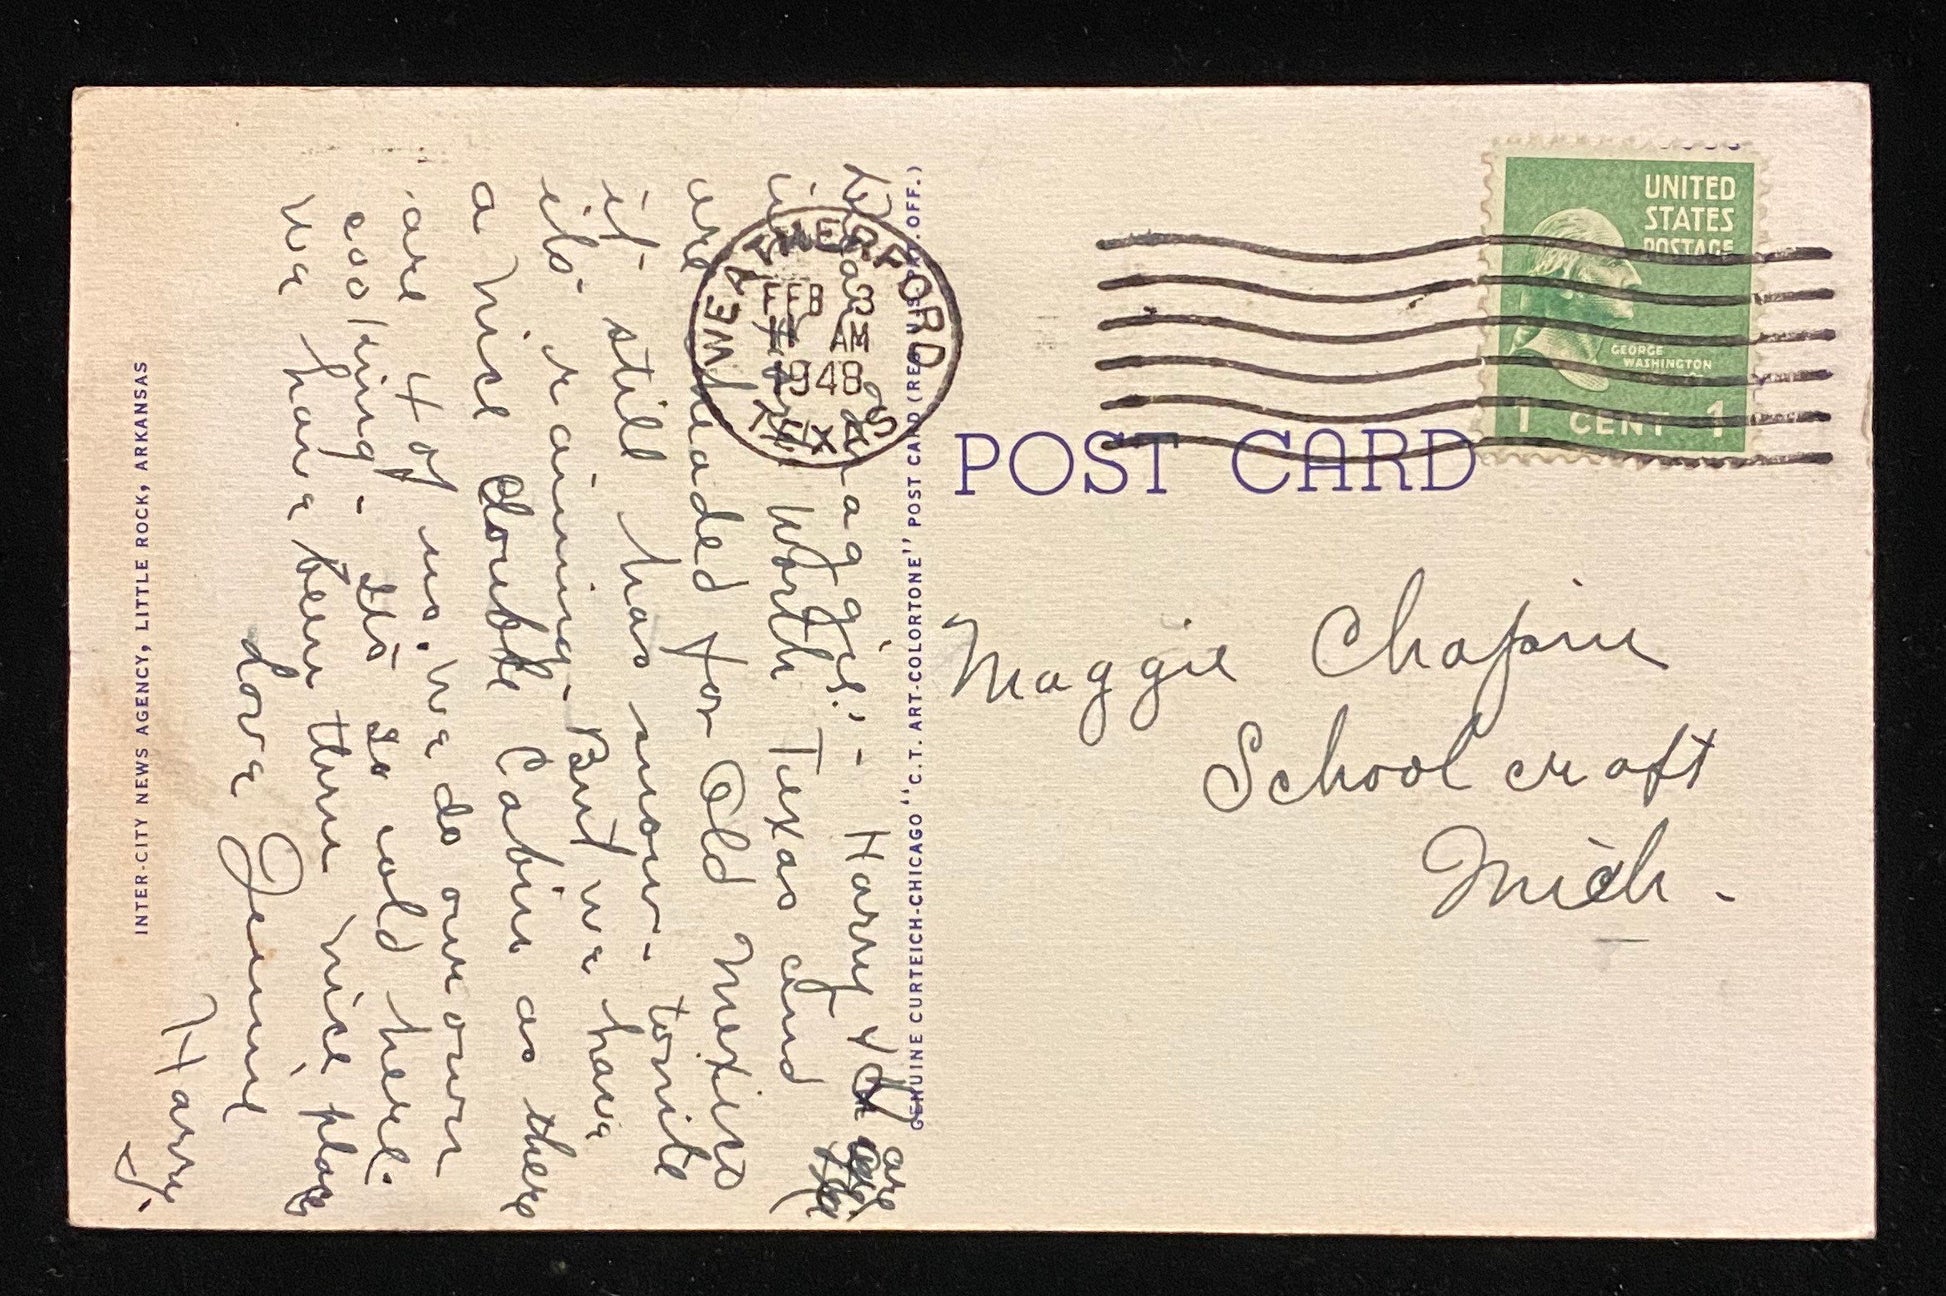 INTER-CITY NEWS AGENCY, LITTLE ROCK, ARKANSAS
Dear Maggie: - Harry & I are
in Fort Worth Texas and
are headed for Old Mexico
it still has snow - tonite
its raining - But we have
a nice double Cabin as there
are 4 of us. We do our own
cooking - Its so cold here.
We have been thru nice places
Love Jennie
Harry.
GENUINE CURTEICH-CHICAGO "C.T. ART-COLORTONE" POST CARD (REG. U.S. PAT. OFF.)
WEATHERFORD
FEB 3
AM
1948
TEXAS
UNITED
STATES
POSTAGE
GEORGE
WASHINGTON
1 CENT 1
POST CARD
Maggie Chapin
Schoolcraft
Mich -